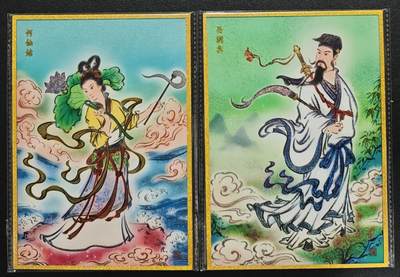 何仙姑
呂洞賓